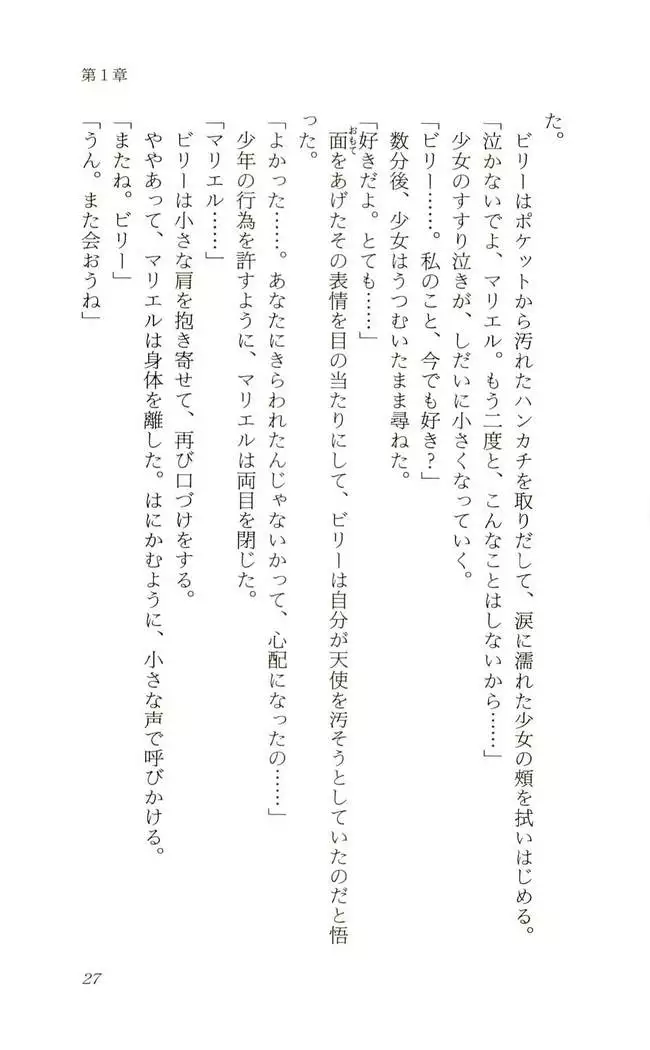 第1章
た。
ビリーはポケットから汚れたハンカチを取りだして、涙に濡れた少女の頬を拭いはじめる。
「泣かないでよ、マリエル。もう二度と、こんなことはしないから……」
少女のすすり泣きが、しだいに小さくなっていく。
「ビリー……。私のこと、今でも好き?」
数分後、少女はうつむいたまま尋ねた。
「好きだよ。とても……」
面おもてをあげたその表情を目の当たりにして、ビリーは自分が天使を汚そうとしていたのだと悟
った。
「よかった……。あなたにきらわれたんじゃないかって、心配になったの……」
少年の行為を許すように、マリエルは両目を閉じた。
「マリエル……」
ビリーは小さな肩を抱き寄せて、再び口づけをする。
ややあって、マリエルは身体を離した。はにかむように、小さな声で呼びかける。
「またね。ビリー」
「うん。また会おうね」
27